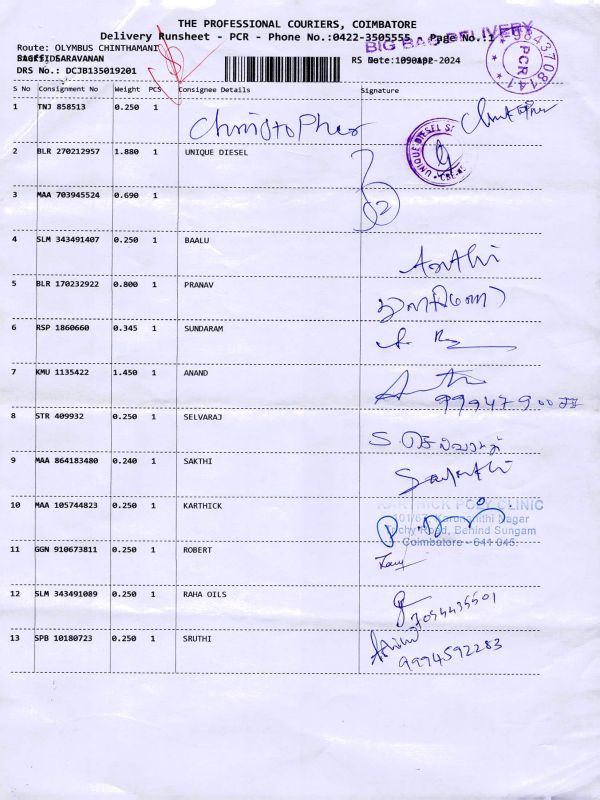 THE PROFESSIONAL COURIERS, COIMBATORE
Delivery Runsheet - PCR - Phone No.:0422-3505555 Page No.:1
BIG BAG DELIVERY
Route: OLYMBUS CHINTHAMANI
SARAVANAN
DRS No.: DCJB135019201
RS Date: 09-Apr-2024
9843708141
PCR
S No Consignment No Weight PCS Consignee Details Signature
1 TNJ 858513 0.250 1 Christopher Christopher
2 BLR 270212957 1.880 1 UNIQUE DIESEL
UNIQUE DIESEL
3 MAA 703945524 0.690 1
4 SLM 343491407 0.250 1 BAALU
5 BLR 170232922 0.800 1 PRANAV
6 RSP 1860660 0.345 1 SUNDARAM
7 KMU 1135422 1.450 1 ANAND
8 STR 409932 0.250 1 SELVARAJ
9 MAA 864183480 0.240 1 SAKTHI
10 MAA 105744823 0.250 1 KARTHICK
KARTHICK POLY CLINIC
Karunanithi Nagar
Road, Behind Sungam
Coimbatore - 641 045.
11 GGN 910673811 0.250 1 ROBERT
12 SLM 343491089 0.250 1 RAHA OILS
7094435501
13 SPB 10180723 0.250 1 SRUTHI
9994592283